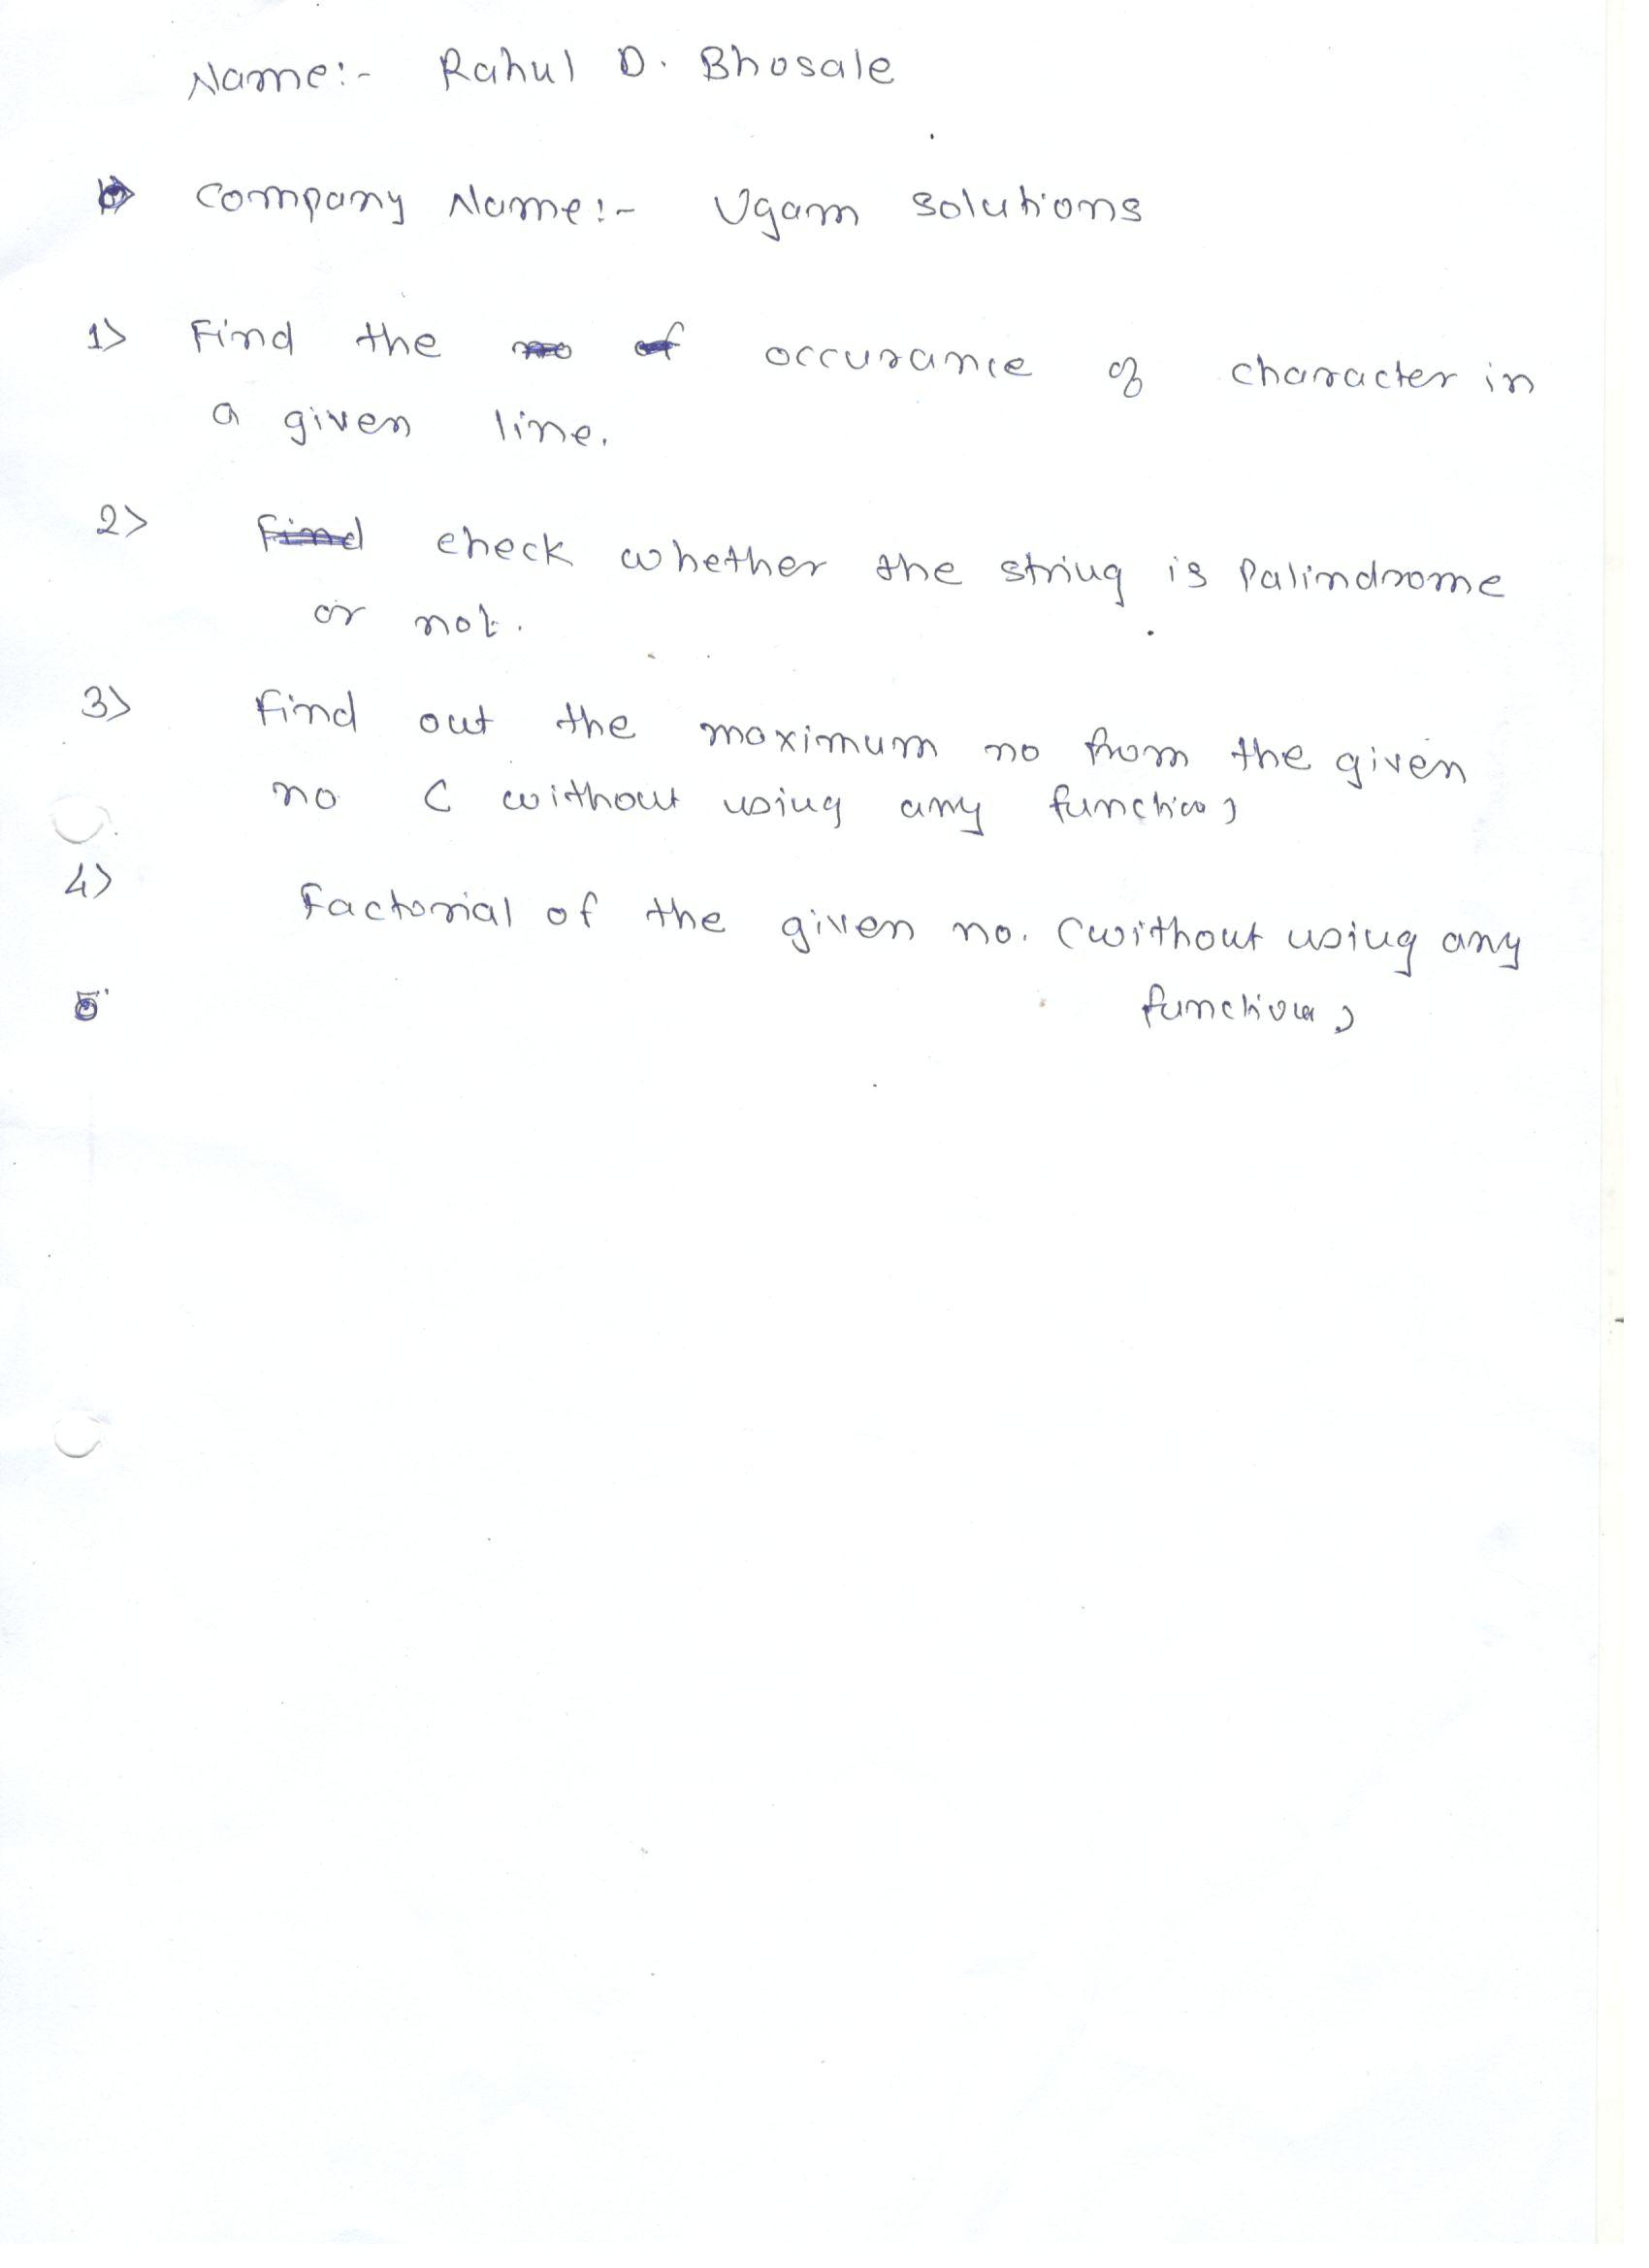 Name:- Rahul D. Bhosale
Company Name:- Ugam solutions
1) Find the occurance of character in
a given line.
2) check whether the string is Palindrome
or not.
3) Find out the maximum no from the given
no ( without using any function)
4) Factorial of the given no. (without using any
function)